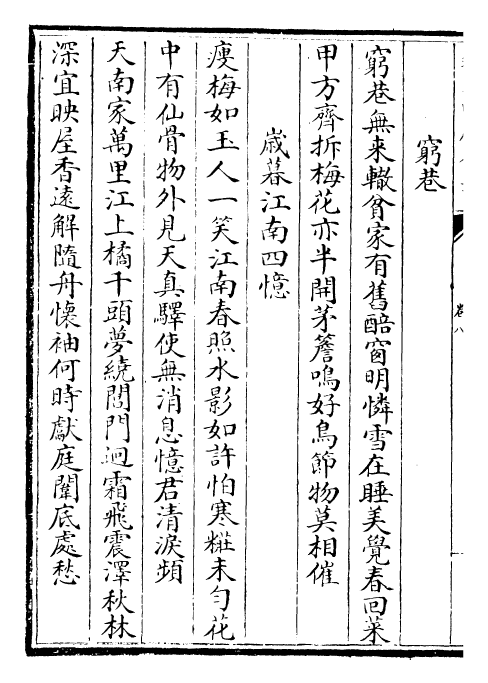 窮巷
窮巷無来轍貧家有舊醅窗明憐雪在睡美覺春回菜
甲方齊拆梅花亦半開茅簷鳴好鳥節物莫相催
歲暮江南四憶
瘦梅如玉人一笑江南春照水影如許怕寒糚未勻花
中有仙骨物外見天真驛使無消息憶君清淚頻
天南家萬里江上橘千頭夢繞閶門迥霜飛震澤秋林
深宜映屋香遠解隨舟懷袖何時獻庭闈底處愁
卷八